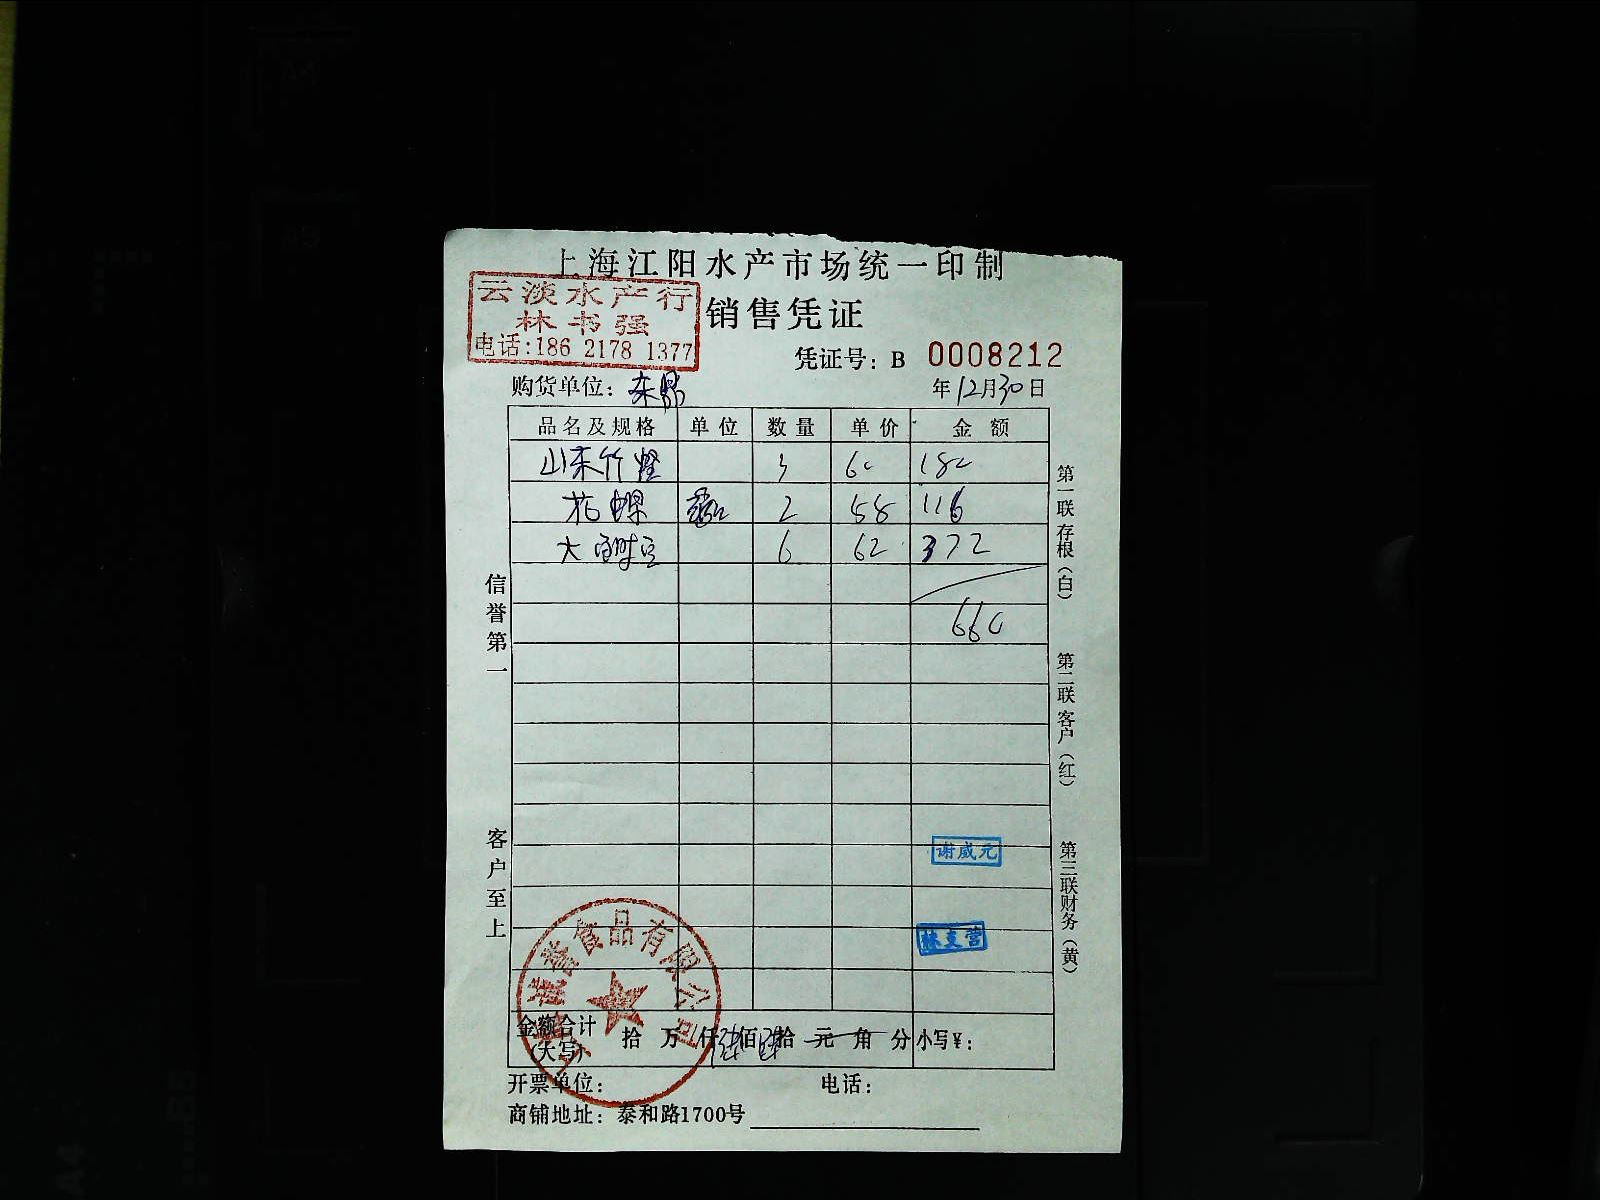 上海江阳水产市场统一印制
云淡水产行
林书强
电话:186 2178 1377
销售凭证
凭证号: B 0008212
购货单位:
年12月30日
品名及规格 单位 数量 单价 金额
山东竹蛏 3 60 180
花螺 2 58 116
大 6 62 372
660
信誉第一
客户至上
第一联存根(白)
第二联客户(红)
第三联财务(黄)
谢威元
林支营
誉食品有限公司
金额合计(大写) 拾 万 仟陆佰陆拾 元 角 分 小写¥:
开票单位: 电话:
商铺地址: 泰和路1700号